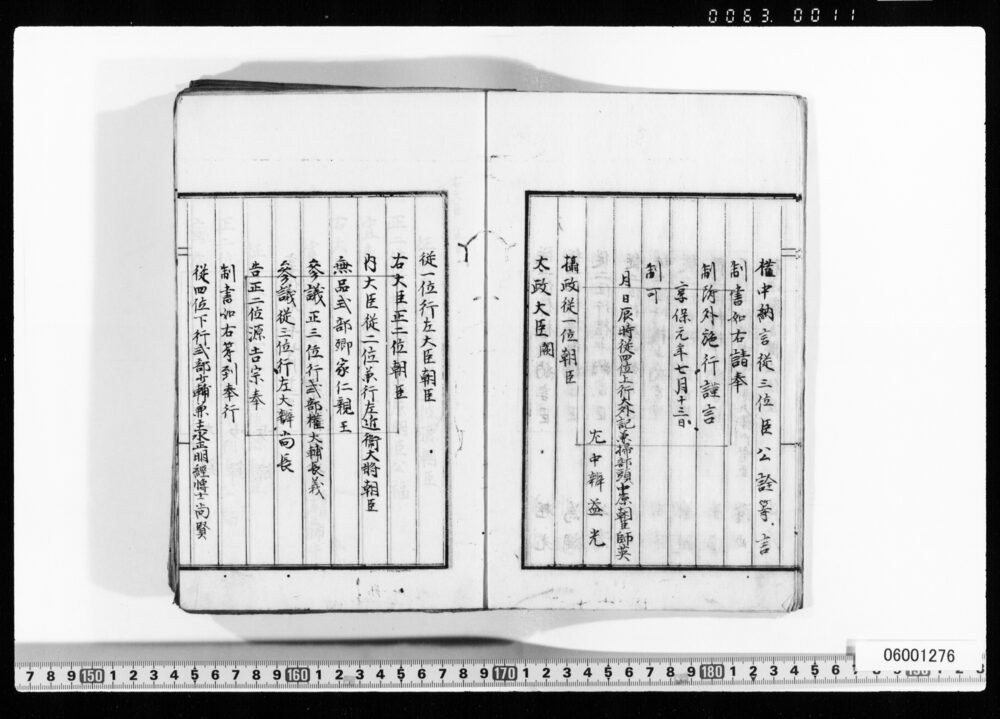 0063.0011
權中納言從三位臣公詮等言
制書如右請奉
制附外施行謹言
享保元年七月十三日
制可
月日辰時從四位上行大外記兼掃部頭中原朝臣師英
左中辨益光
攝政從一位朝臣
太政大臣闕
從一位行左大臣朝臣
右大臣正二位朝臣
內大臣從二位兼行左近衛大將朝臣
無品式部卿家仁親王
參議正三位行式部權大輔長義
參議從三位行左大辨尚長
告正二位源吉宗奉
制書如右等到奉行
從四位下行式部少輔兼主水正明經博士尚賢
7 8 9 150 1 2 3 4 5 6 7 8 9 160 1 2 3 4 5 6 7 8 9 170 1 2 3 4 5 6 7 8 9 180 1 2 3 4 5 6
06001276